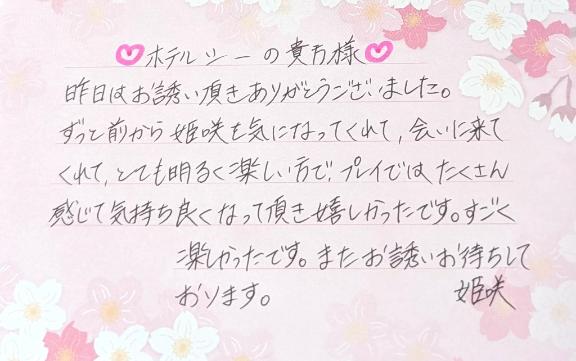 ♡ホテルシーの貴方様♡
昨日はお誘い頂きありがとうございました。
ずっと前から姫咲を気になってくれて、会いに来て
くれて、とても明るく楽しい方で、プレイではたくさん
感じて気持ち良くなって頂き嬉しかったです。すごく
楽しかったです。またお誘いお待ちして
おります。 姫咲